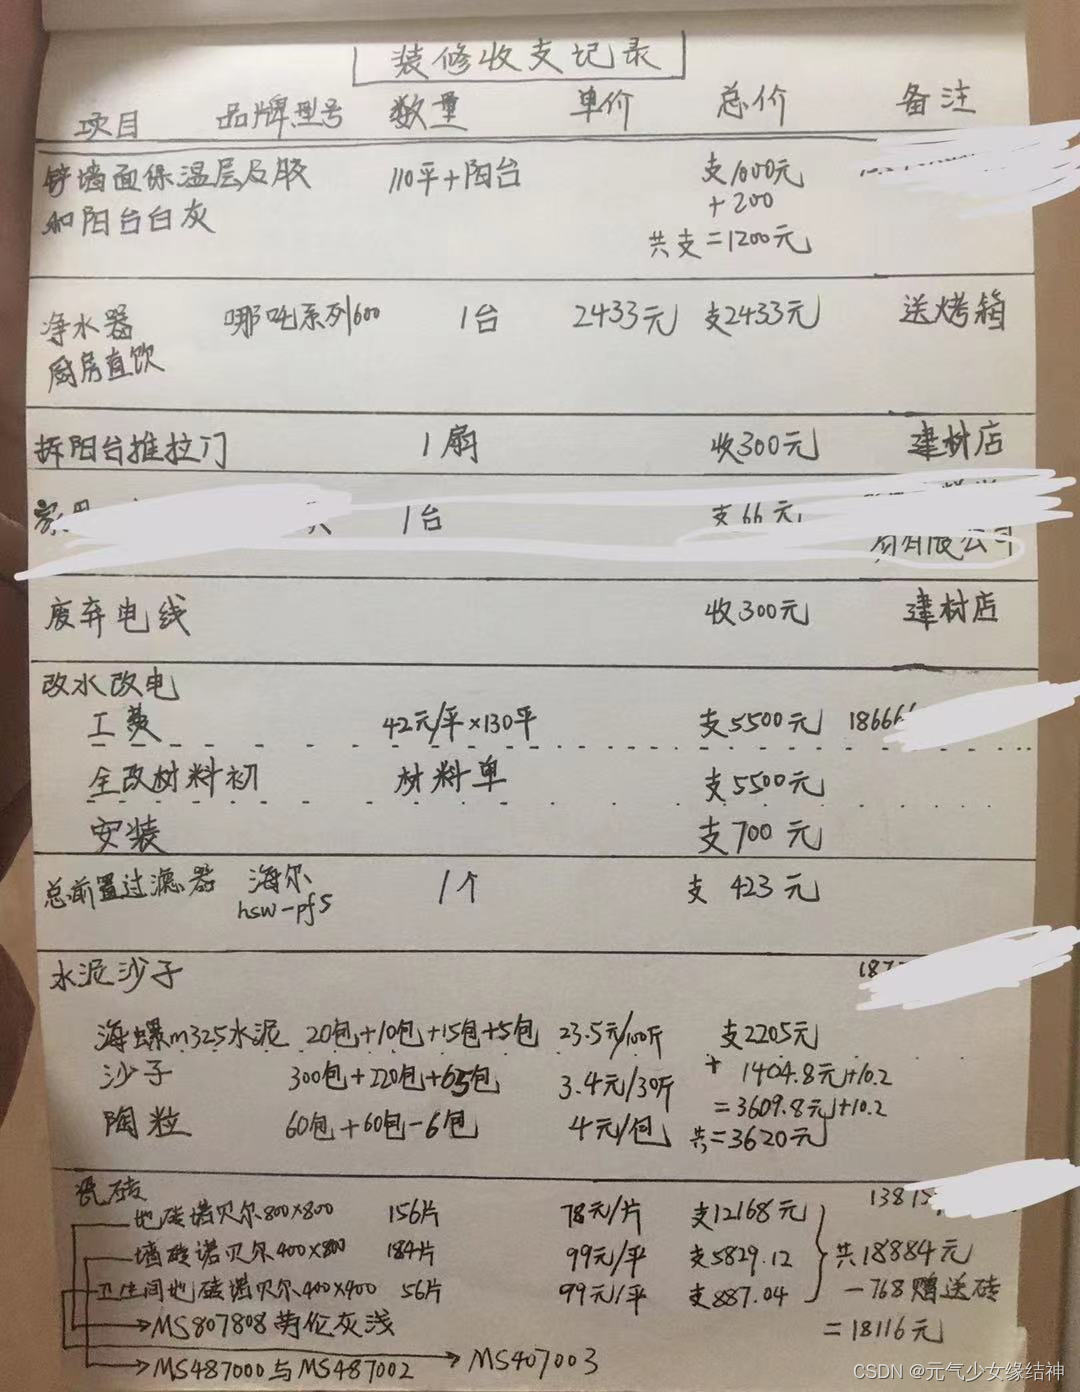 装修收支记录
项目 品牌型号 数量 单价 总价 备注
铲墙面保温层及胶 110平+阳台 支1000元
和阳台白灰 +200
共支=1200元
净水器 哪吒系列600 1台 2433元 支2433元 送烤箱
厨房直饮
拆阳台推拉门 1扇 收300元 建材店
家用 1台 支66元
有限公司
废弃电线 收300元 建材店
改水改电
工费 42元/平×130平 支5500元 18666
全改材料初 材料单 支5500元
安装 支700元
总前置过滤器 海尔 1个 支 423元
hsw-pf5
水泥沙子 187
海螺m325水泥 20包+10包+15包+5包 23.5元/100斤 支2205元
沙子 300包+220包+65包 3.4元/30斤 + 1404.8元+10.2
=3609.8元+10.2
陶粒 60包+60包-6包 4元/包 共=3620元
瓷砖 13815
地砖诺贝尔800×800 156片 78元/片 支12168元
墙砖诺贝尔400×800 184片 99元/平 支5829.12 共18884元
卫生间地砖诺贝尔400×400 56片 99元/平 支887.04 -768赠送砖
MS807808劳伦灰浅 =18116元
MS487000与MS487002 MS407003
CSDN @元气少女缘结神